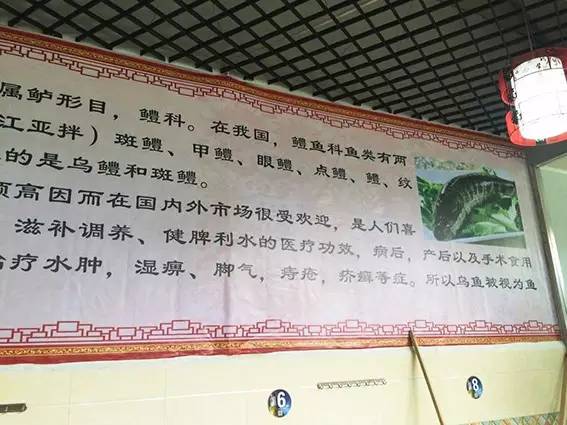 属鲈形目，鳢科。在我国，鳢鱼科鱼类有两
江亚拌）斑鳢、甲鳢、眼鳢、点鳢、鳢、纹
的是乌鳢和斑鳢。
颇高因而在国内外市场很受欢迎，是人们喜
滋补调养、健脾利水的医疗功效，病后，产后以及手术食用
治疗水肿，湿痹、脚气，痔疮，疥癣等症。所以乌鱼被视为鱼
6
8